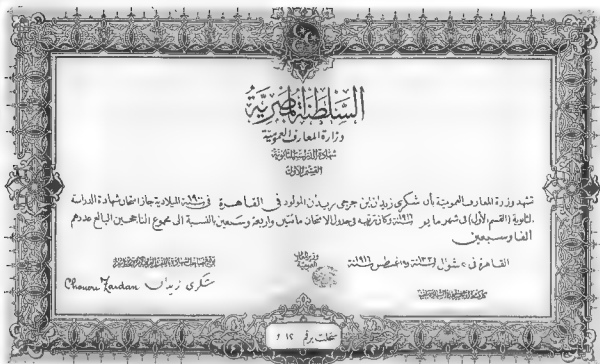 السلطنة المصرية
وزارة المعارف العمومية
شهادة الدراسة الثانوية
القسم الأول
تشهد وزارة المعارف العمومية بأن شكري زيدان بن جرجي زيدان المولود في القاهرة في سنة ١٩٠٠ الميلادية جاز امتحان شهادة الدراسة
الثانوية (القسم الأول) في شهر مايو سنة ١٩١٦ وكان ترتيبه في جدول الامتحان مائتين واربعة وتسعين بالنسبة الى مجموع الناجحين البالغ عددهم
الفا وسبعين
القاهرة في شوال سنة واغسطس سنة ١٩١٦
وزير المعارف العمومية
شكري زيدان
Choucri Zaidan
سجلت برقم ٦١٢